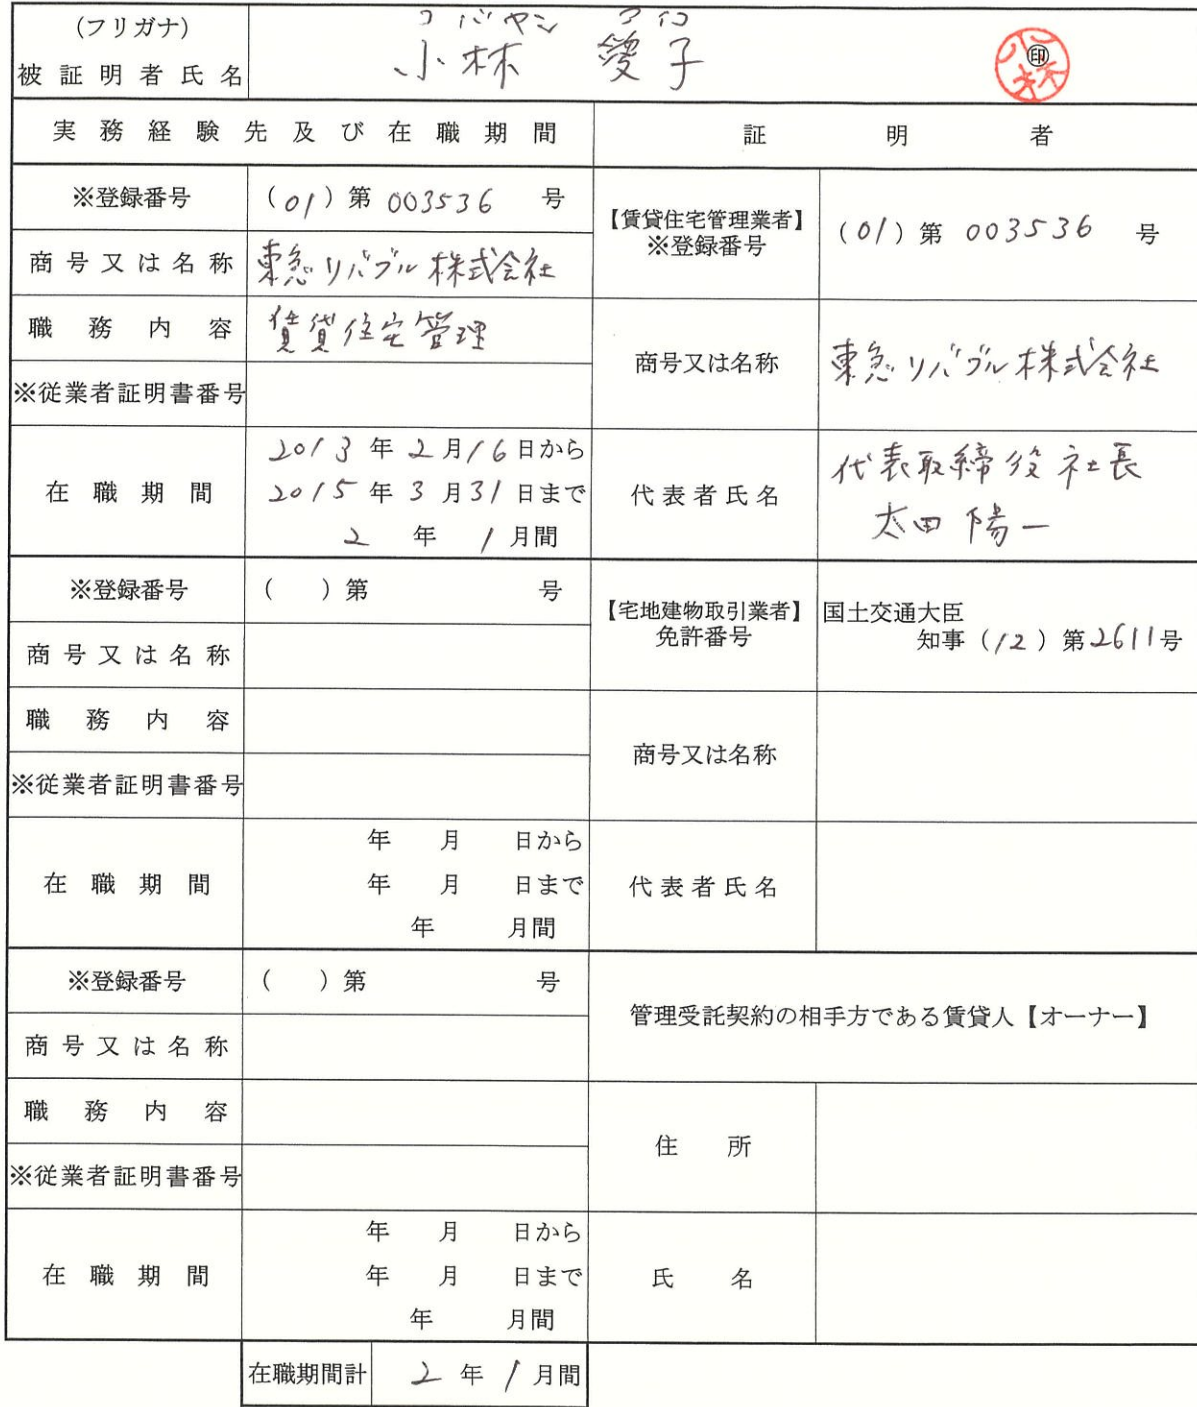 (フリガナ) コバヤシ アイコ
被証明者氏名 小林 愛子 ㊞ 小林
実務経験先及び在職期間 証明者
※登録番号 (01)第 003536 号
商号又は名称 東急リバブル株式会社
職務内容 賃貸住宅管理
※従業者証明書番号
在職期間 2013年2月16日から
2015年3月31日まで
2年1月間
【賃貸住宅管理業者】
※登録番号 (01)第 003536 号
商号又は名称 東急リバブル株式会社
代表者氏名 代表取締役社長
太田陽一
※登録番号 ( )第 号
商号又は名称
職務内容
※従業者証明書番号
在職期間 年 月 日から
年 月 日まで
年 月間
【宅地建物取引業者】 国土交通大臣
免許番号 知事(12)第2611号
商号又は名称
代表者氏名
※登録番号 ( )第 号
商号又は名称
職務内容
※従業者証明書番号
在職期間 年 月 日から
年 月 日まで
年 月間
管理受託契約の相手方である賃貸人【オーナー】
住所
氏名
在職期間計 2年1月間